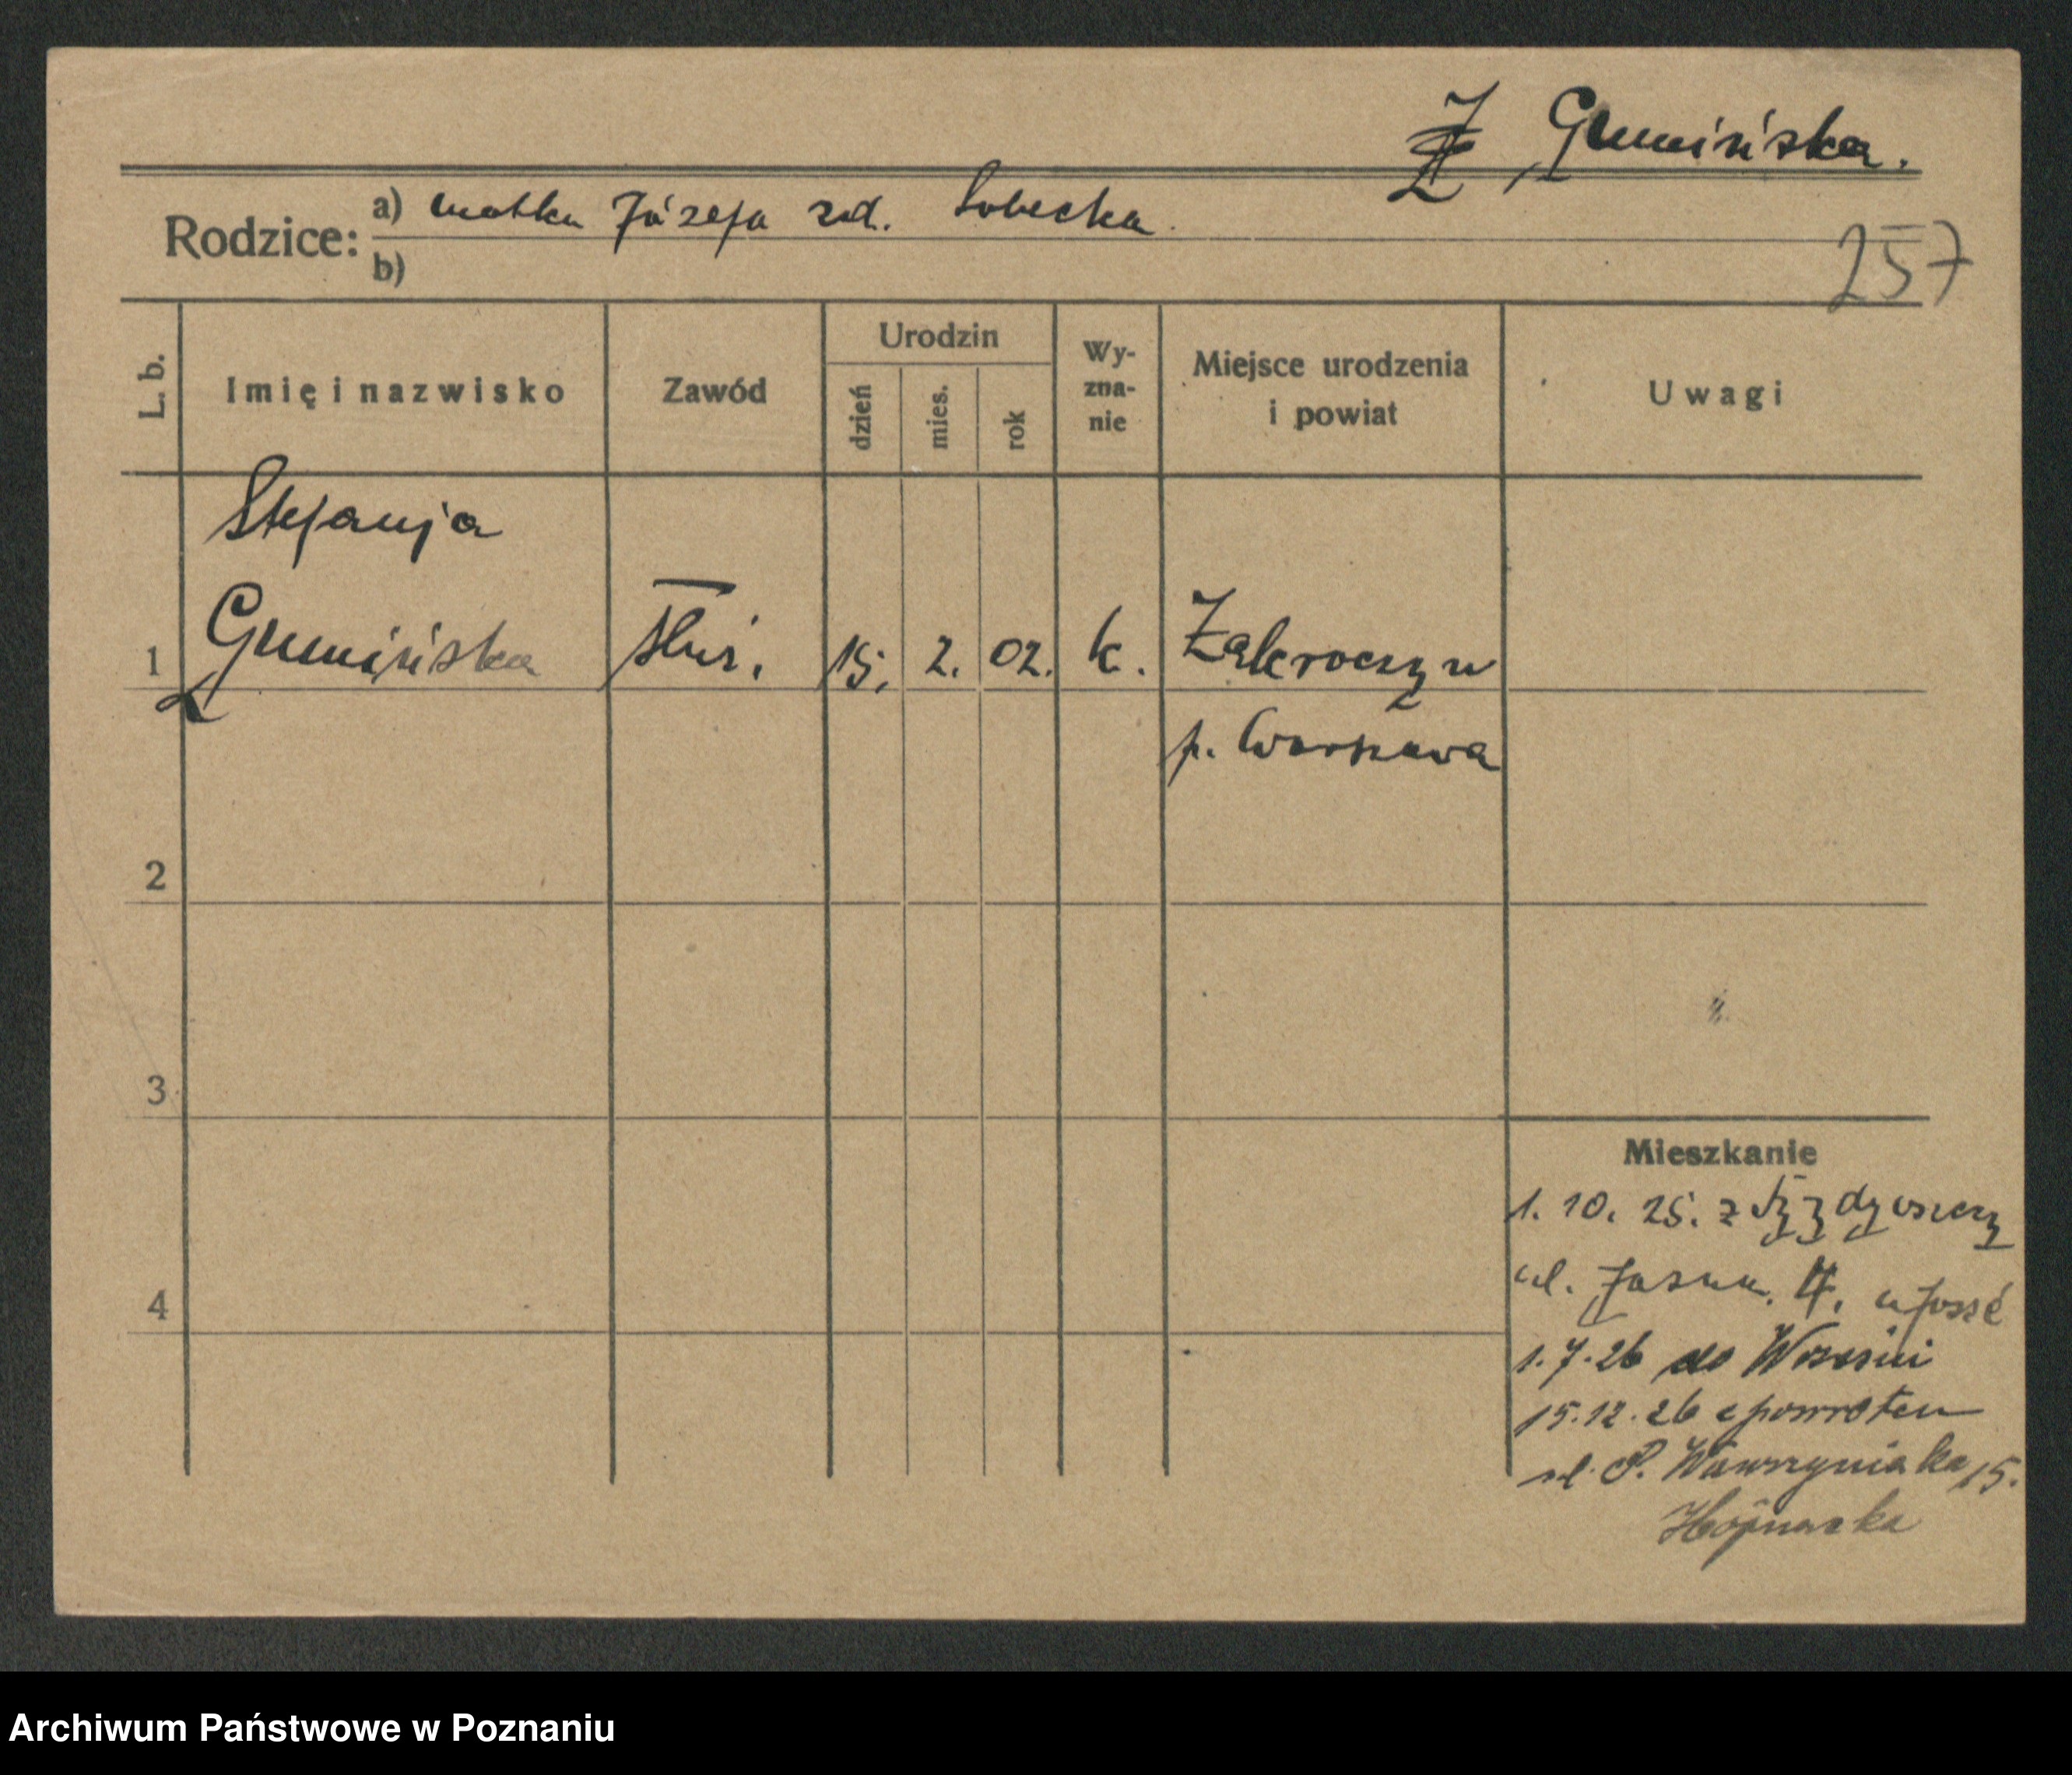 Gumińska.
Rodzice: a) matka Józefa zd. Sobecka.
b)
257
L. b. Imię i nazwisko Zawód Urodzin dzień mies. rok Wy-zna-nie Miejsce urodzenia i powiat Uwagi
Stefanja
1 Gumińska służ. 15. 2. 02. k. Zakroczyn
p. Warszawa
2
3
Mieszkanie
1. 10. 25. z
ul. Jasna 4.
4
1.7.26 do Wrześni
15.12.26 z powrotem
ul. P. Wawrzyniaka 15.
Archiwum Państwowe w Poznaniu